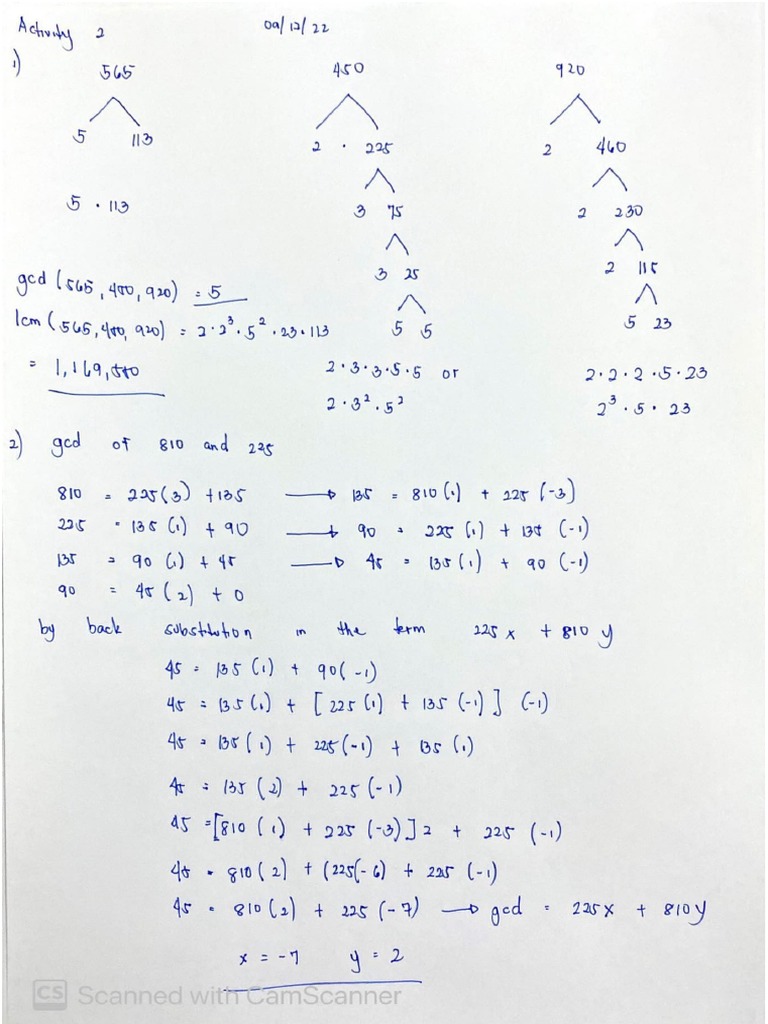 Activity 2 09/12/22
1) 565 450 920
5 113 2 · 225 2 460
5 · 113 3 75 2 230
3 25 2 115
gcd (565, 450, 920) = 5
5 5 5 23
lcm (565, 450, 920) = 2 · 2³ · 5² · 23 · 113
= 1,169,550
2 · 3 · 3 · 5 · 5 or 2 · 2 · 2 · 5 · 23
2 · 3² · 5² 2³ · 5 · 23
2) gcd of 810 and 225
810 = 225(3) + 135 → 135 = 810(1) + 225(-3)
225 = 135(1) + 90 → 90 = 225(1) + 135(-1)
135 = 90(1) + 45 → 45 = 135(1) + 90(-1)
90 = 45(2) + 0
by back substitution in the term 225x + 810y
45 = 135(1) + 90(-1)
45 = 135(1) + [225(1) + 135(-1)] (-1)
45 = 135(1) + 225(-1) + 135(1)
45 = 135(2) + 225(-1)
45 = [810(1) + 225(-3)]2 + 225(-1)
45 = 810(2) + (225(-6) + 225(-1)
45 = 810(2) + 225(-7) → gcd = 225x + 810y
x = -7 y = 2
CS Scanned with CamScanner